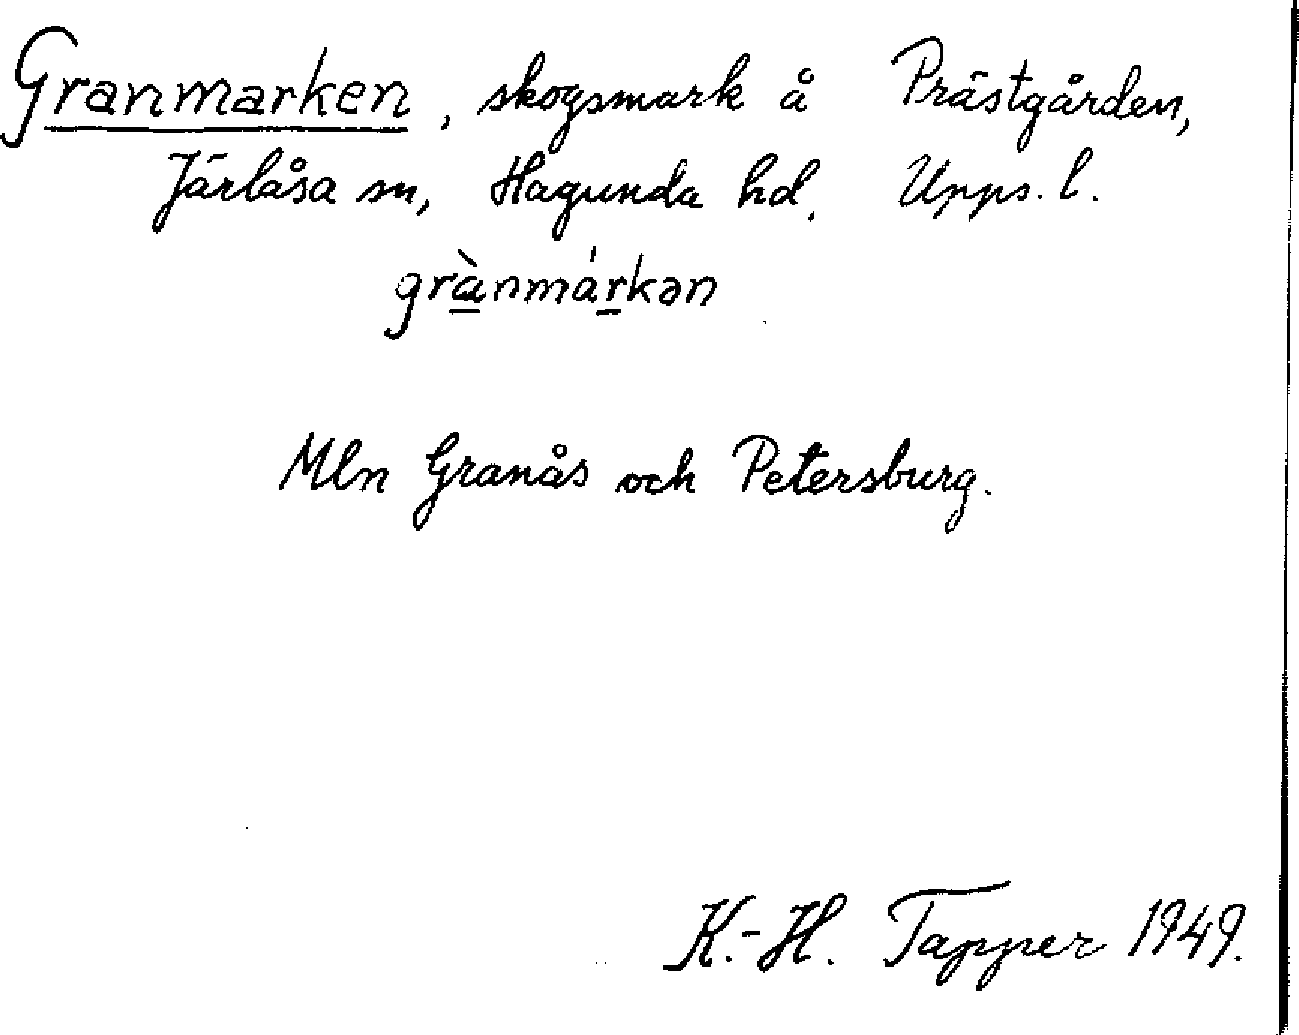 Granmarken, skogsmark å Prästgården,
Järlåsa sn, Hagunda hd. Upps. l.
grànmárkən
Mln Granås och Petersburg.
K.-H. Tapper 1949.